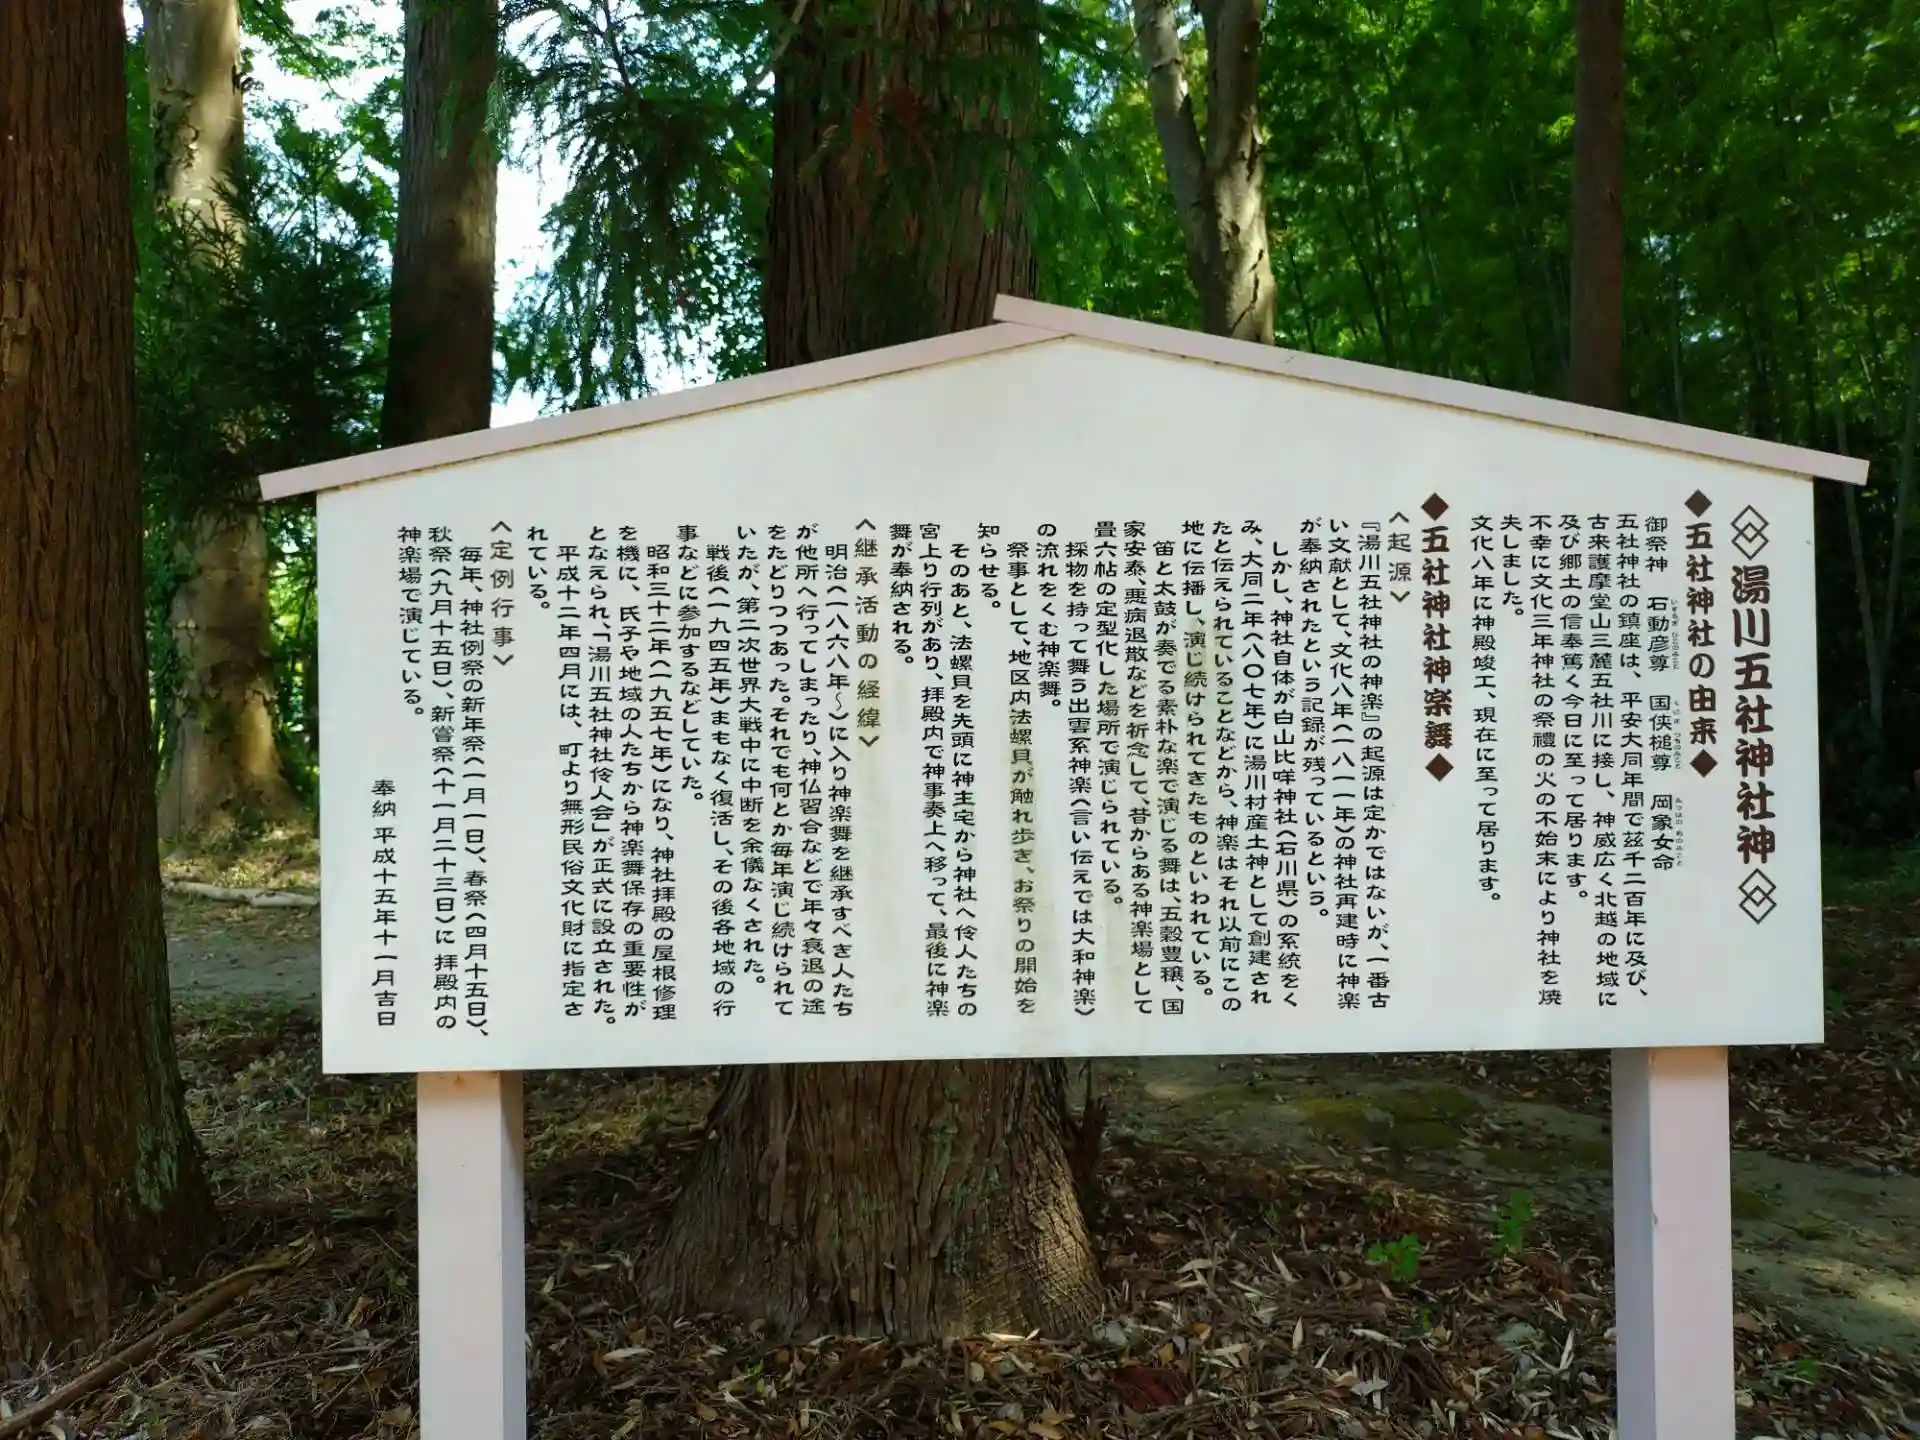 湯川五社神社神
◆五社神社の由来◆
御祭神 石動彦尊 国侠槌尊 岡象女命
五社神社の鎮座は、平安大同年間で茲千二百年に及び、
古来護摩堂山三麓五社川に接し、神威広く北越の地域に
及び郷土の信奉篤く今日に至って居ります。
不幸に文化三年神社の祭禮の火の不始末により神社を焼
失しました。
文化八年に神殿竣工、現在に至って居ります。
◆五社神社神楽舞◆
〈起源〉
『湯川五社神社の神楽』の起源は定かではないが、一番古
い文献として、文化八年(一八一一年)の神社再建時に神楽
が奉納されたという記録が残っているという。
しかし、神社自体が白山比咩神社(石川県)の系統をく
み、大同二年(八〇七年)に湯川村産土神として創建され
たと伝えられていることなどから、神楽はそれ以前にこの
地に伝播し、演じ続けられてきたものといわれている。
笛と太鼓が奏でる素朴な楽で演じる舞は、五穀豊穣、国
家安泰、悪病退散などを祈念して、昔からある神楽場として
畳六帖の定型化した場所で演じられている。
採物を持って舞う出雲系神楽(言い伝えでは大和神楽)
の流れをくむ神楽舞。
祭事として、地区内法螺貝が触れ歩き、お祭りの開始を
知らせる。
そのあと、法螺貝を先頭に神主宅から神社へ伶人たちの
宮上り行列があり、拝殿内で神事奏上へ移って、最後に神楽
舞が奉納される。
〈継承活動の経緯〉
明治(一八六八年〜)に入り神楽舞を継承すべき人たち
が他所へ行ってしまったり、神仏習合などで年々衰退の途
をたどりつつあった。それでも何とか毎年演じ続けられて
いたが、第二次世界大戦中に中断を余儀なくされた。
戦後(一九四五年)まもなく復活し、その後各地域の行
事などに参加するなどしていた。
昭和三十二年(一九五七年)になり、神社拝殿の屋根修理
を機に、氏子や地域の人たちから神楽舞保存の重要性が
となえられ、「湯川五社神社伶人会」が正式に設立された。
平成十二年四月には、町より無形民俗文化財に指定さ
れている。
〈定例行事〉
毎年、神社例祭の新年祭(一月一日)、春祭(四月十五日)、
秋祭(九月十五日)、新嘗祭(十一月二十三日)に拝殿内の
神楽場で演じている。
奉納 平成十五年十一月吉日